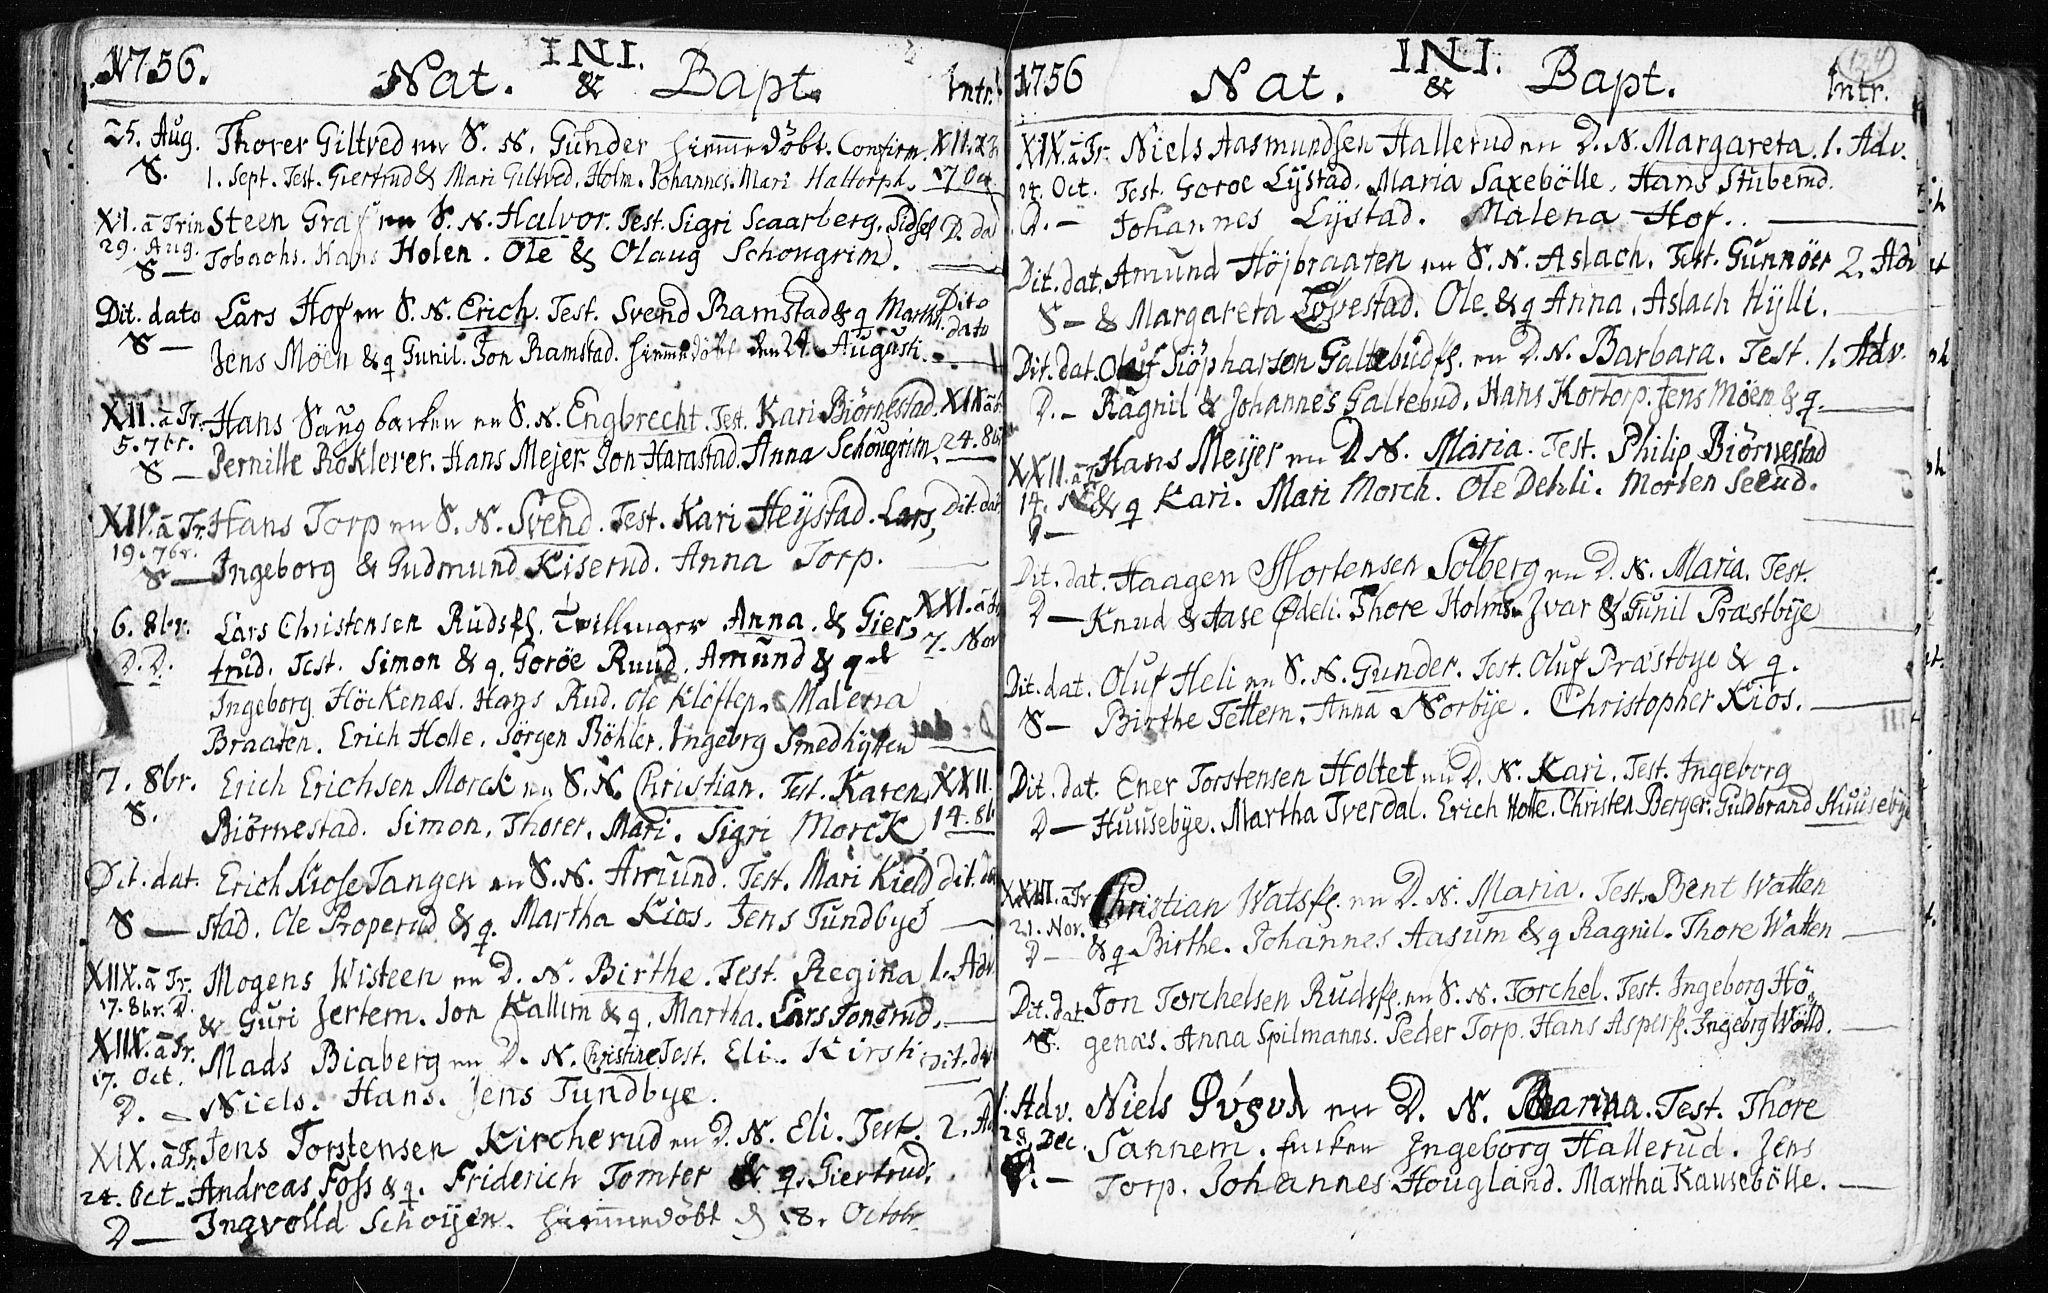 1756. INI.
Nat. & Bapt. Intr.
25. Aug. Thorer Giltved en S. N. Gunder hiemmedöbt. Confirm. XII. à Tr.
S. 1. Sept. Test. Giertrud & Mari Giltved. Holm. Johannes. Mari Haltorph. 17 Oct.
XI. à Trin Steen Graf en S. N. Halvor. Test. Sigri Scaarberg. Sidsel D. da
29. Aug.
S — Tobachs. Hans Holen. Ole & Olaug Schougrim.
Dit. dato Lars Hof en S. N. Erich. Test. Svend Ramstad & q Martha. Dito dato
S — Jens Möen & q Gunil. Jon Ramstad. hiemmedöbt den 24. Augusti.
XII. à Tr. Hans Saugbacken en S. N. Engbrecht. Test. Kari Biörnestad. XIX à tr
5. 7br.
S — Pernille Röklever. Hans Mejer. Jon Harastad. Anna Schougrim. 24. 8b
XIV. à Tr. Hans Torp en S. N. Svend. Test. Kari Heystad. Lars, Dit. dat
19. 7br.
S — Ingeborg & Gudmund Kiserud. Anna Torp.
6. 8br. Lars Christensen Rudsff. Tvillinger Anna. & Gier, XXI. à Tr
D. D. trud. Test. Simon & q. Goröe Ruud. Amund & q 7. Nov
Ingeborg Höckenæs. Hans Rud. Ole Klöften. Malena
Braaten. Erich Holle. Jörgen Böhler. Ingeborg Smedhytten
7. 8br. Erich Erichsen Morck en S. N. Christian. Test. Karen XXII.
S. Biörnestad. Simon, Thorer, Mari. Sigri Morck 14. 8b
Dit. dat. Erich Kiose Tangen en S. N. Amund. Test. Mari Kield Dit. dat
S — stad. Ole Properud & q. Martha Kios. Jens Tundbye
XIIX. à Tr. Mogens Wisteen en D. N. Birthe. Test. Regina 1. Adv.
17. 8br. D. & Guri Jertem. Jon Kallum & q. Martha. Lars Tonerud.
XIIX. à Tr. Mads Biaberg en D. N. Christine Test. Eli. Kirsti Dit. dat
17. Oct.
D. — Niels. Hans. Jens Tundbye.
XIX. à Tr. Jens Torstensen Kircherud en D. N. Eli. Test. 2. Ad
24. Oct. Andreas Foss & q. Friderich Tomter & q. Giertrud.
D — Ingvolld Schoijen. hiemmedöbt d 18. Octobr
1756 INI.
Nat. & Bapt. Intr.
XIX. à Tr. Niels Aasmundsen Hallerud en D. N. Margareta. 1. Adv.
24. Oct. Test. Goroe Lystad. Maria Saxebölle. Hans Stuberud.
D. — Johannes Lystad. Malena Hof.
Dit. dat. Amund Höjbraaten en S. N. Aslach. Test. Gunnöer 2. Adv
S — & Margareta Tövestad. Ole & q Anna. Aslach Hylli.
Dit. dat. Oluf Siöpharson Galtebudff. en D. N. Barbara. Test. 1. Adv.
D. — Ragnil & Johannes Galtebud. Hans Kortorp. Jens Möen & q.
XXII. à Tr Hans Meijer en D. N. Maria. Test. Philip Biörnestad
14. & q Kari. Mari Morch. Ole Dehli. Morten Seeud.
D —
Dit. dat. Haagen Mortensen Solberg en D. N. Maria. Test.
D — Knud & Aase Ødeli. Thore Holms. Jvar & Gunil Præstbye
Dit. dat. Oluf Heli en S. N. Gunder. Test. Oluf Præstbye & q.
S — Birthe Tettem. Anna Norbye. Christopher Kios.
Dit. dat. Ener Torstensen Holtet en D. N. Kari. Test. Ingeborg
D — Huusebye. Martha Tverdal. Erich Holle. Christen Berger. Guldbrand Huusebye
XXIII. à Tr Christian Watsff. en D. N. Maria. Test. Bent Watten
21. Nov.
D — & q Birthe. Johannes Aasum & q Ragnil. Thore Watten
Dit. dat. Jon Torchelsen Rudsff. en S. N. Torchel. Test. Ingeborg Hö,
S. genæs. Anna Spilmanns. Peder Torp. Hans Aspersf. Ingeborg Wölld.
1. Adv. Niels en D. N. Marina. Test. Thore
28. Dec. Sannem. Ingeborg Hallerud. Jens
D. — Torp. Johannes Hougland. Martha Kausebölle.